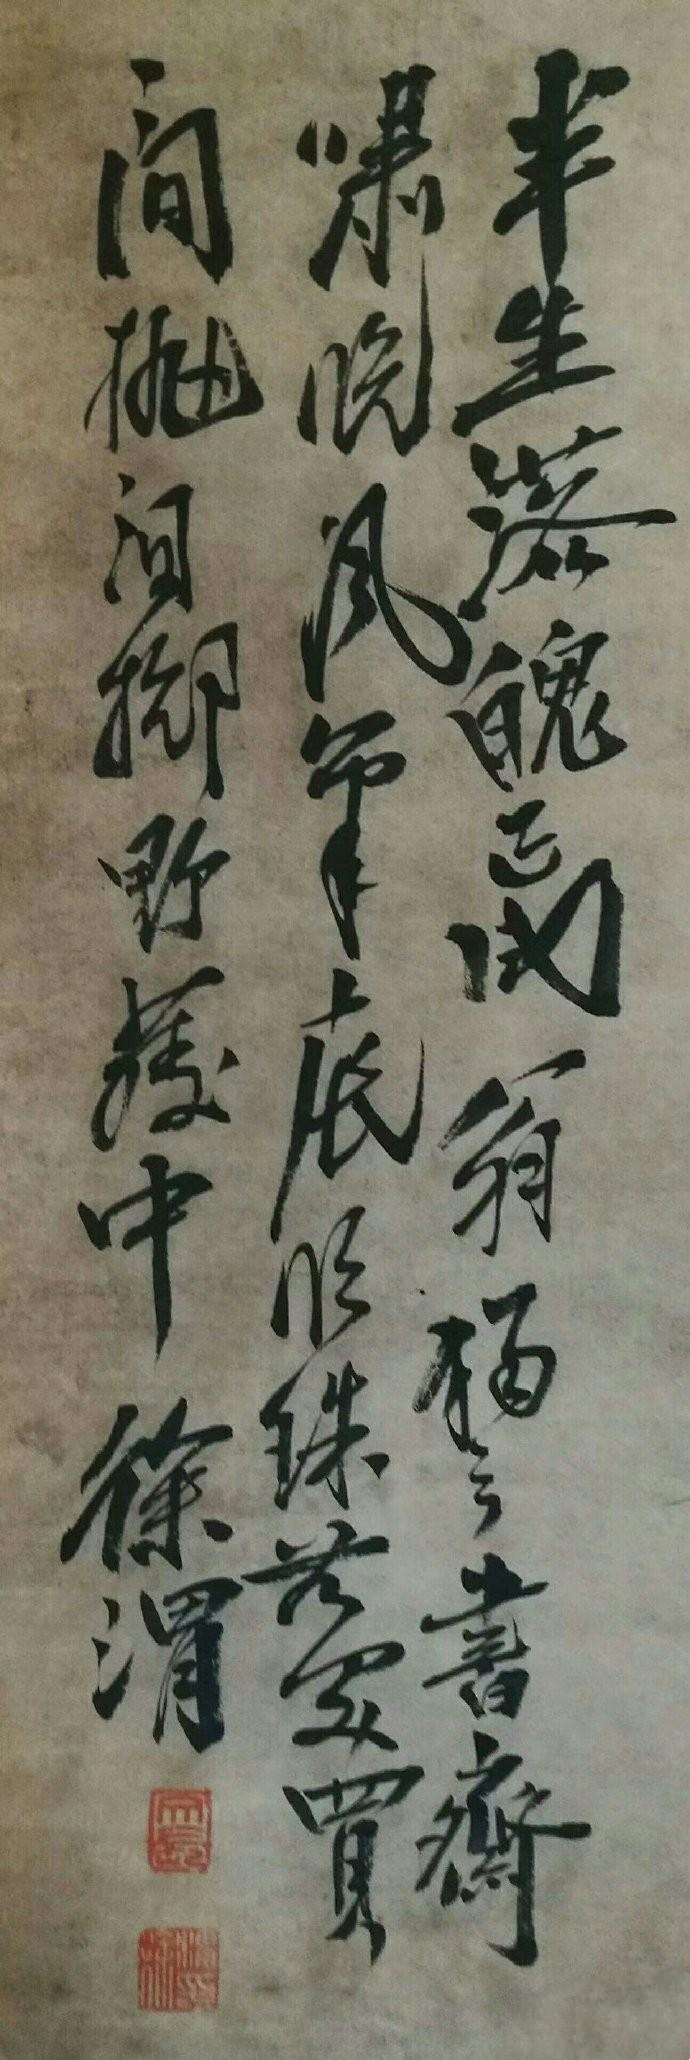 半生落魄已成翁獨立書齋
嘯晚風筆底明珠無處賣
閒拋閒擲野藤中 徐渭